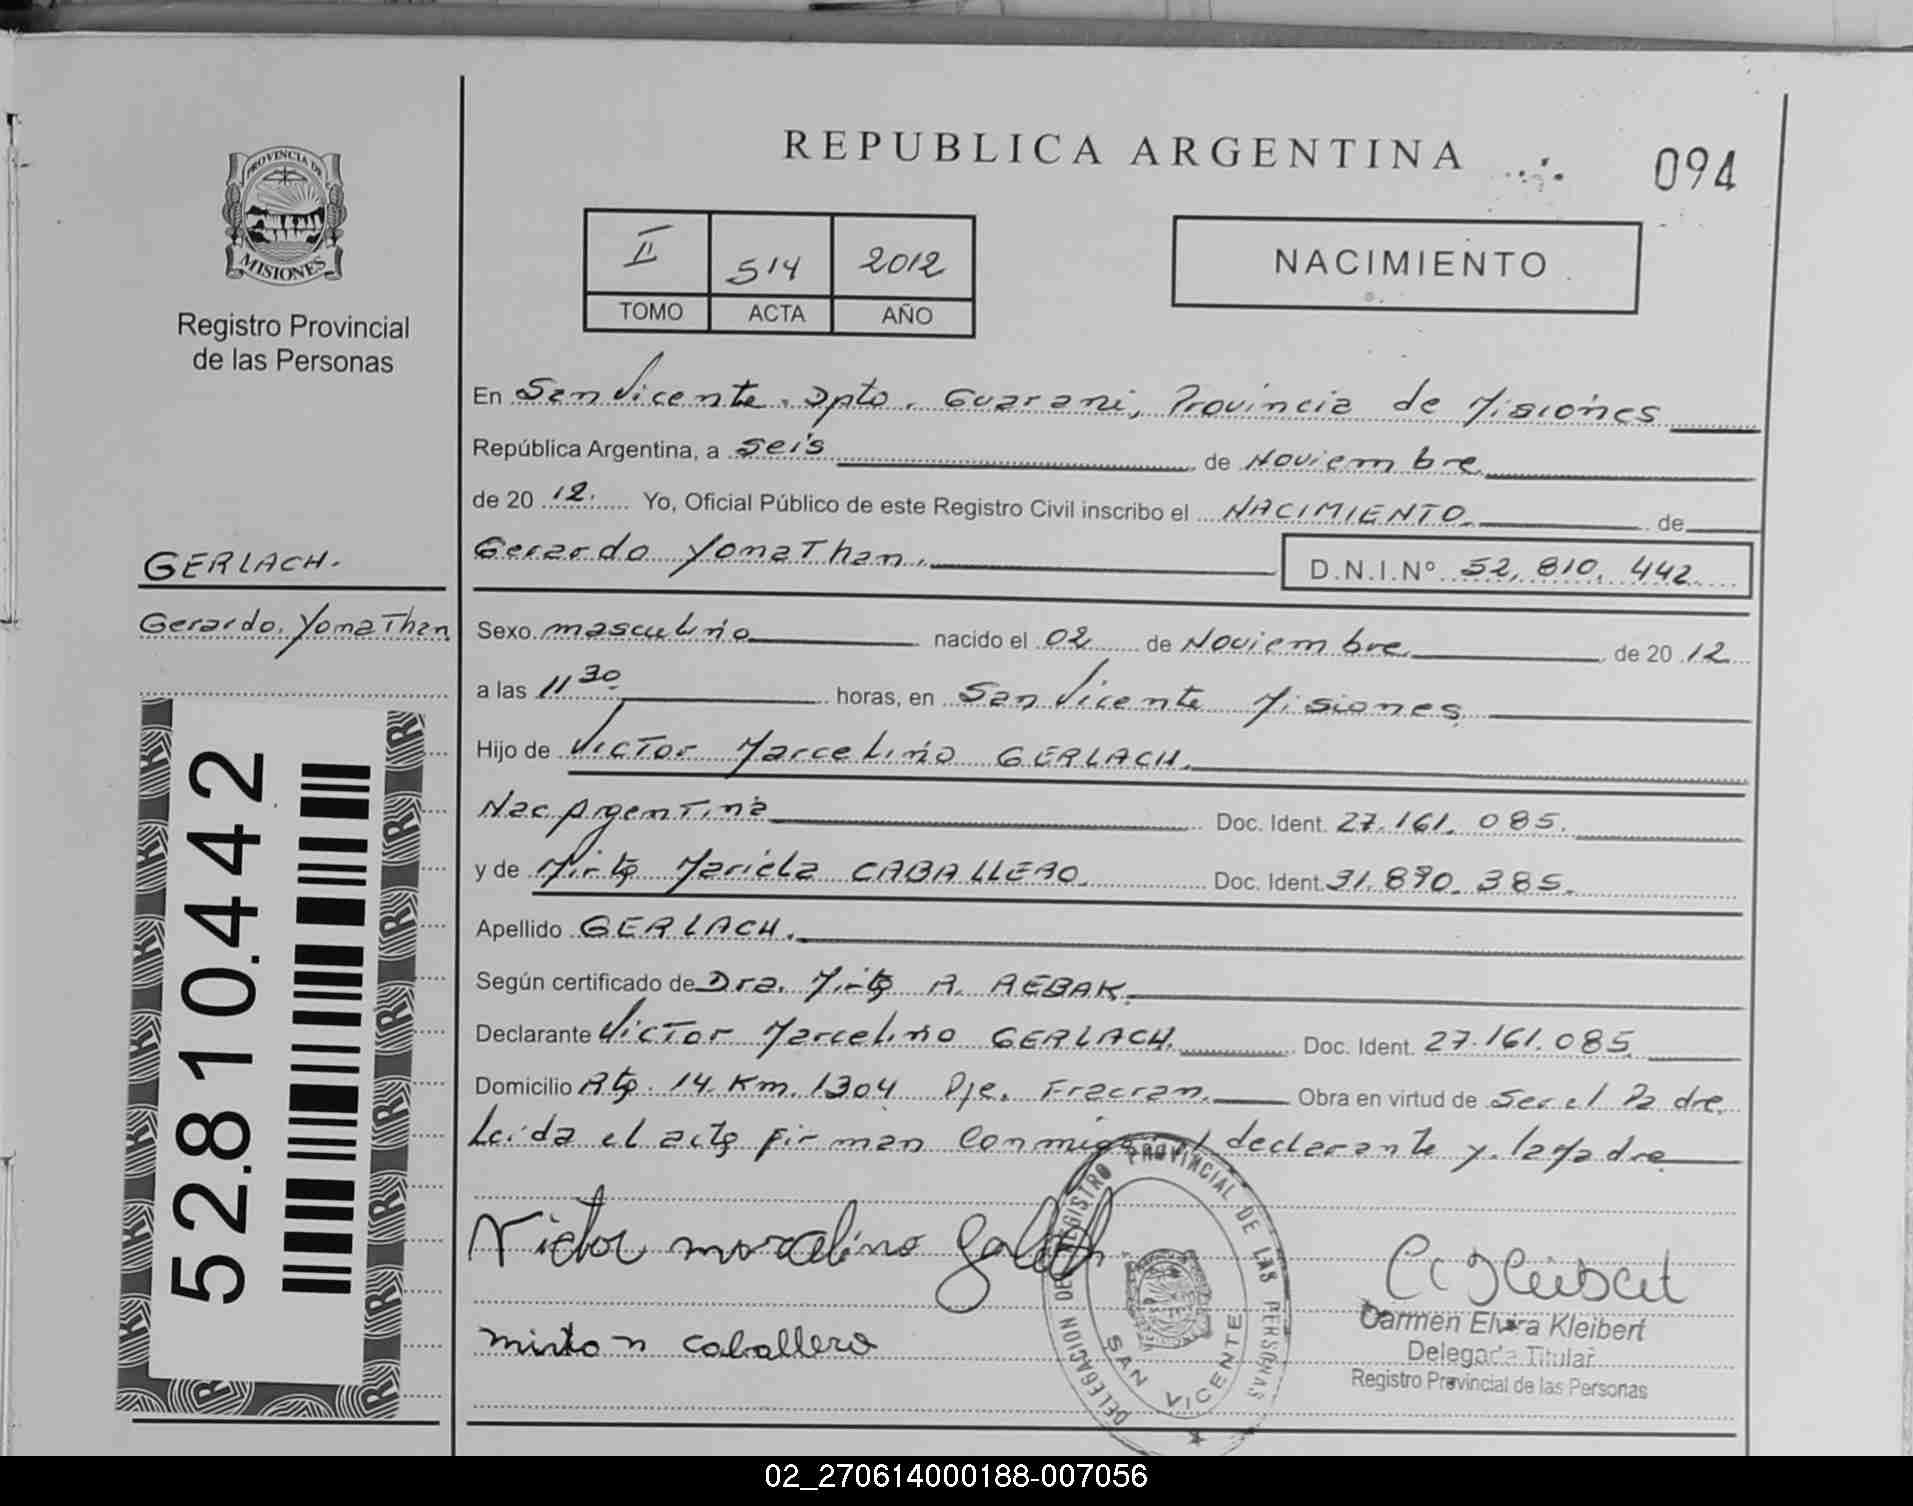 REPUBLICA ARGENTINA
094
PROVINCIA DE
MISIONES
Registro Provincial
de las Personas
II 514 2012
TOMO ACTA AÑO
NACIMIENTO
En San Vicente. Dpto. Guarani, Provincia de Misiones
República Argentina, a seis de Noviembre
de 20 12. Yo, Oficial Público de este Registro Civil inscribo el NACIMIENTO de
GERLACH.
Gerardo Yonathan
Gerardo Yonathan. D.N.I.Nº 52,810,442
Sexo masculino nacido el 02 de Noviembre de 20 12
a las 11 30 horas, en San Vicente Misiones
Hijo de Victor Marcelino GERLACH.
Nac Argentina Doc. Ident. 27.161.085.
y de Mirta Mariela CABALLERO. Doc. Ident. 31.890.385.
Apellido GERLACH.
Según certificado de Dra. Mirta R. REBAK.
Declarante Victor Marcelino GERLACH. Doc. Ident. 27.161.085
Domicilio Rta. 14. Km. 1304 Pje. Fracran. Obra en virtud de Ser el Padre.
Leida el acta firman Conmigo el declarante y la Madre
Victor marcelino
mirta n caballero
DELEGACION DE REGISTRO PROVINCIAL DE LAS PERSONAS
SAN VICENTE
Carmen Elvira Kleibert
Delegada Titular
Registro Provincial de las Personas
52.810.442
02_270614000188-007056